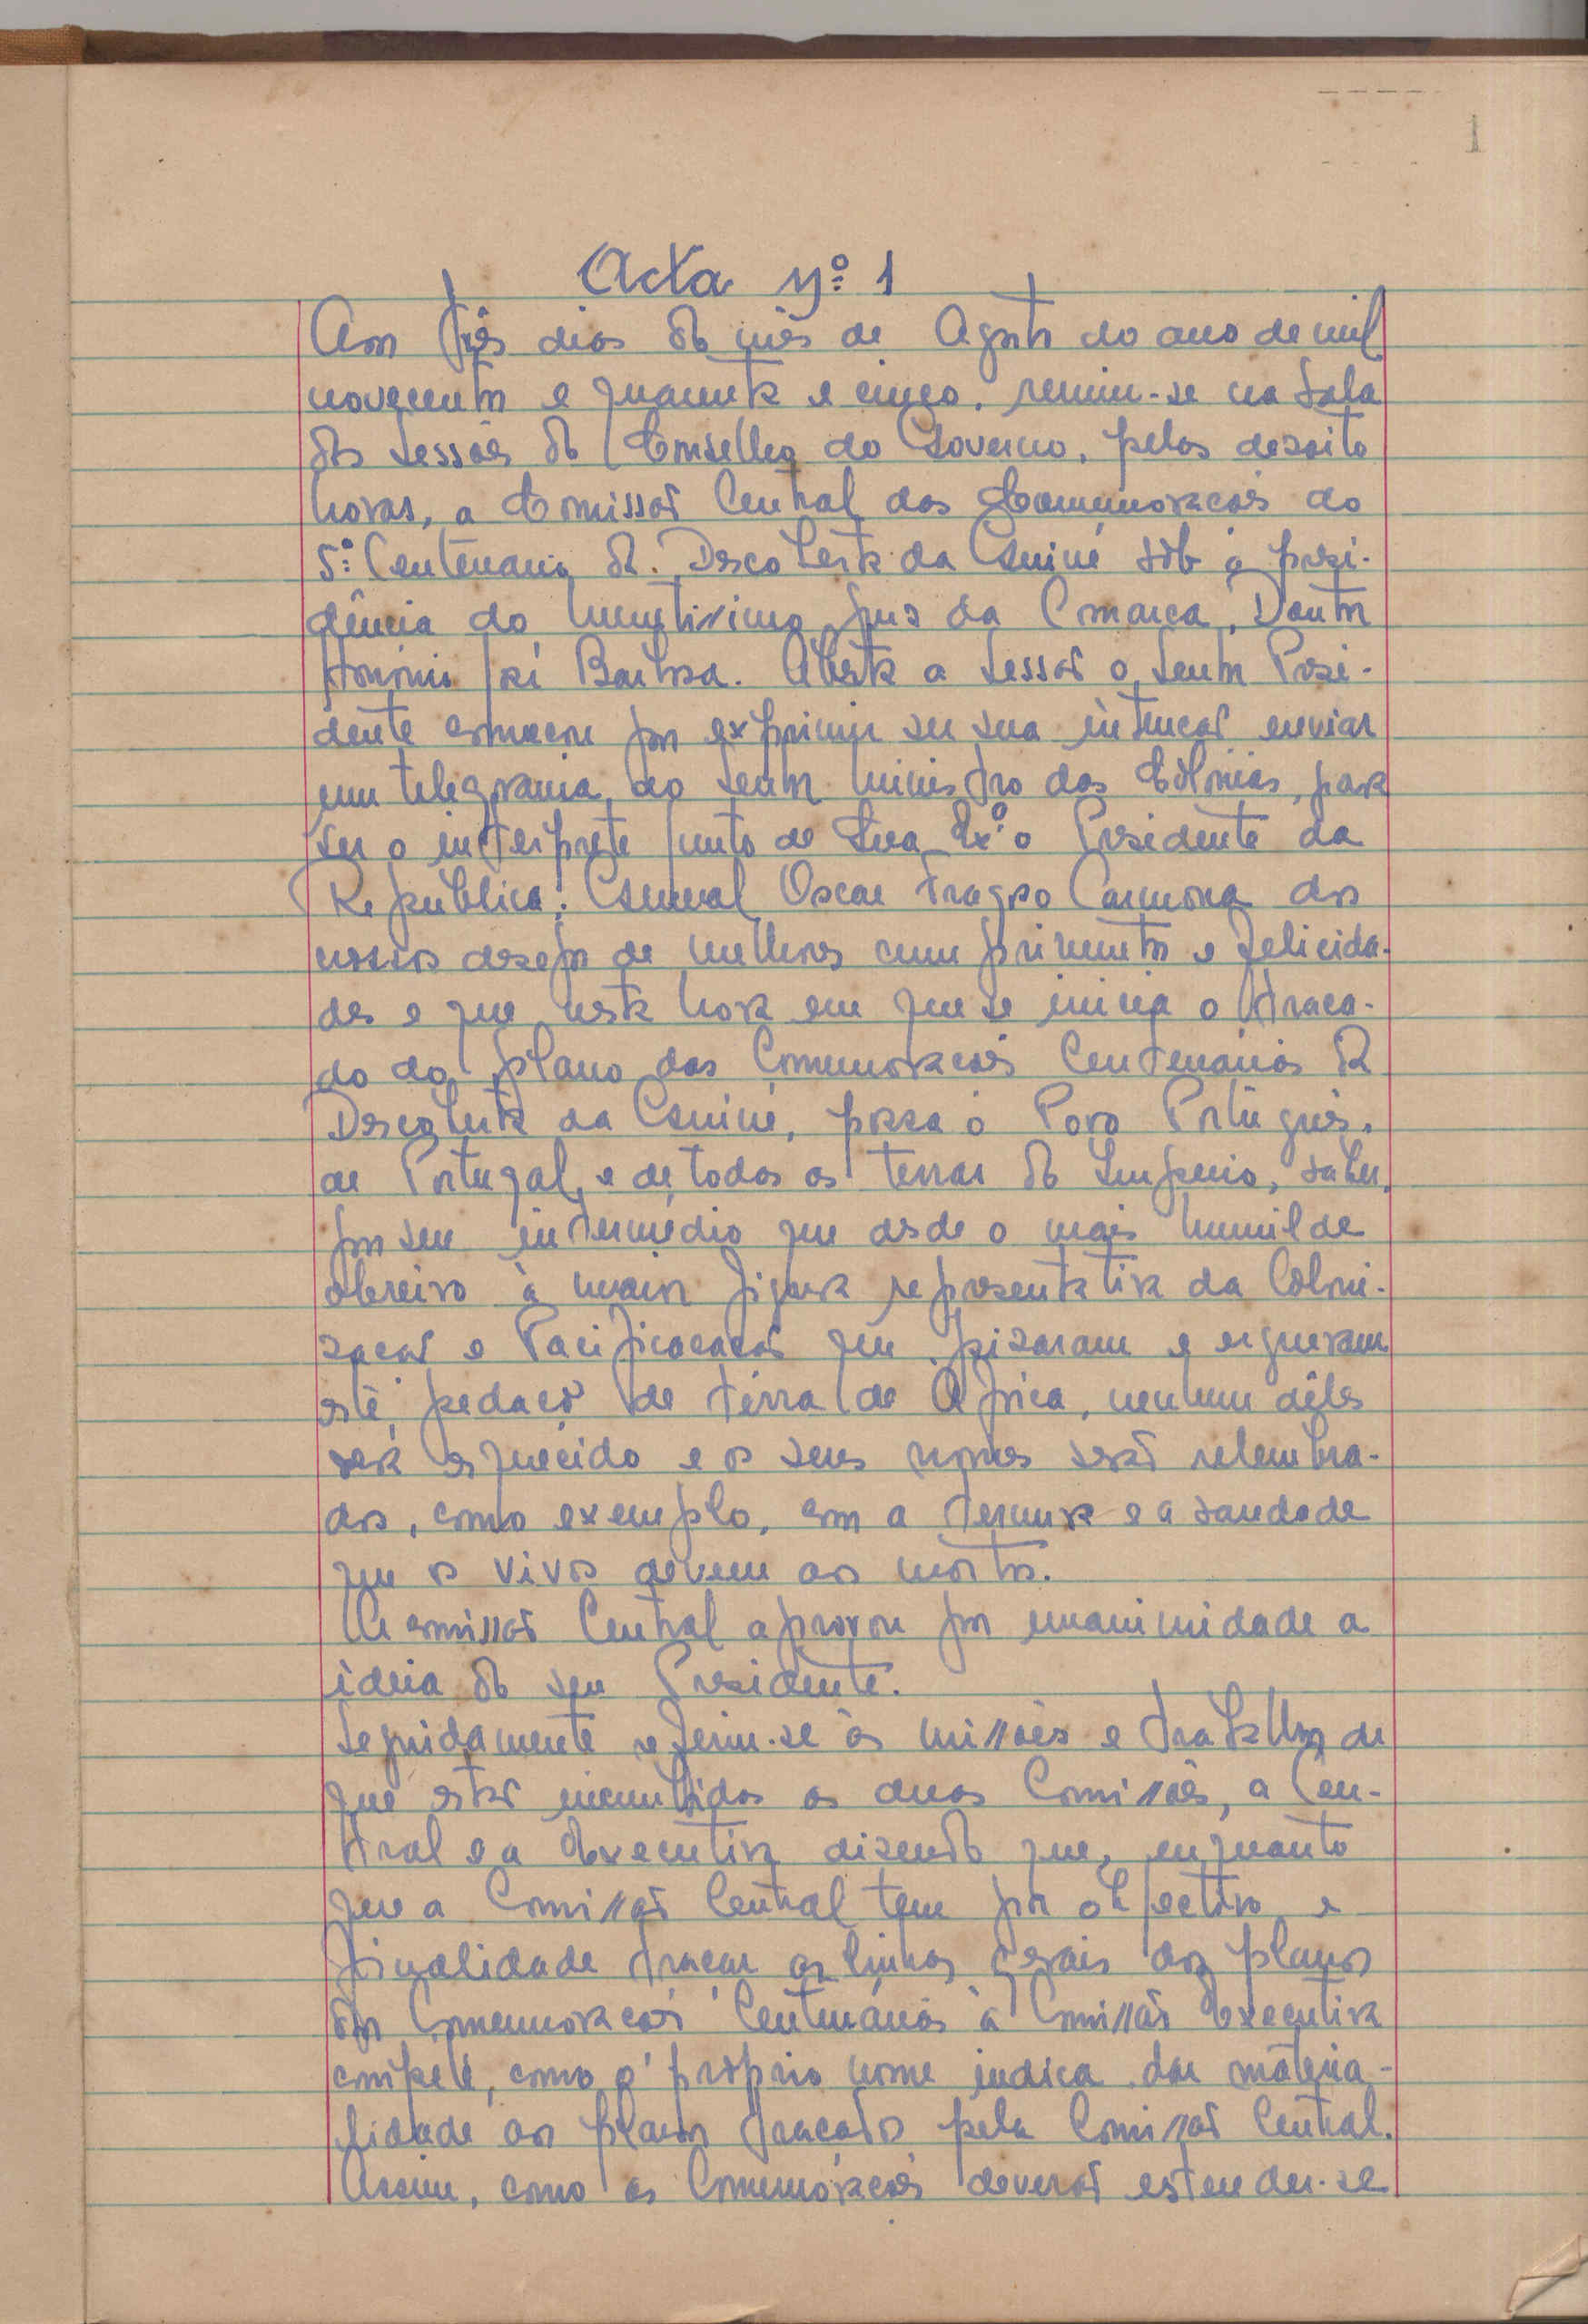 1
Acta nº 1
Aos três dias do mês de Agosto do ano de mil
novecentos e quarenta e cinco, reuniu-se na Sala
das Sessões do Conselho do Governo, pelas dezoito
horas, a Comissão Central das Comemorações do
5º Centenário da Descoberta da Guiné sob a presi-
dência do Meretíssimo Juiz da Comarca, Doutor
António José Barbosa. Aberta a Sessão o Senhor Presi-
dente começou por exprimir ser sua intenção enviar
um telegrama ao Senhor Ministro das Colónias, para
ser o intérprete junto de Sua Exº o Presidente da
República: General Oscar Fragoso Carmona dos
nossos desejos de melhores cumprimentos e felicida-
des e que nesta hora em que se inicia o traça-
do do plano das Comemorações Centenárias da
Descoberta da Guiné, possa o Povo Português,
de Portugal e de todas as terras do Império, saber,
por seu intermédio que desde o mais humilde
obreiro à maior figura representativa da Coloni-
zação e Pacificação que pizaram e ergueram
este pedaço de terra de Africa, nenhum dêles
será esquecido e os seus nomes serão relembra-
dos, como exemplo, com a ternura e a saudade
que os vivos devem aos mortos.
A comissão Central aprovou por unanimidade a
ideia do seu Presidente.
Seguidamente referiu-se às missões e trabalhos de
que estão incumbidas as duas Comissões, a Cen-
tral e a Executiva dizendo que, enquanto
que a Comissão Central tem por objectivo e
finalidade traçar as linhas gerais dos planos
das Comemorações Centenárias à Comissão Executiva
compete, como o próprio nome indica dar materia-
lidade aos planos traçados pela Comissão Central.
Assim, como as Comemorações deverão estender-se